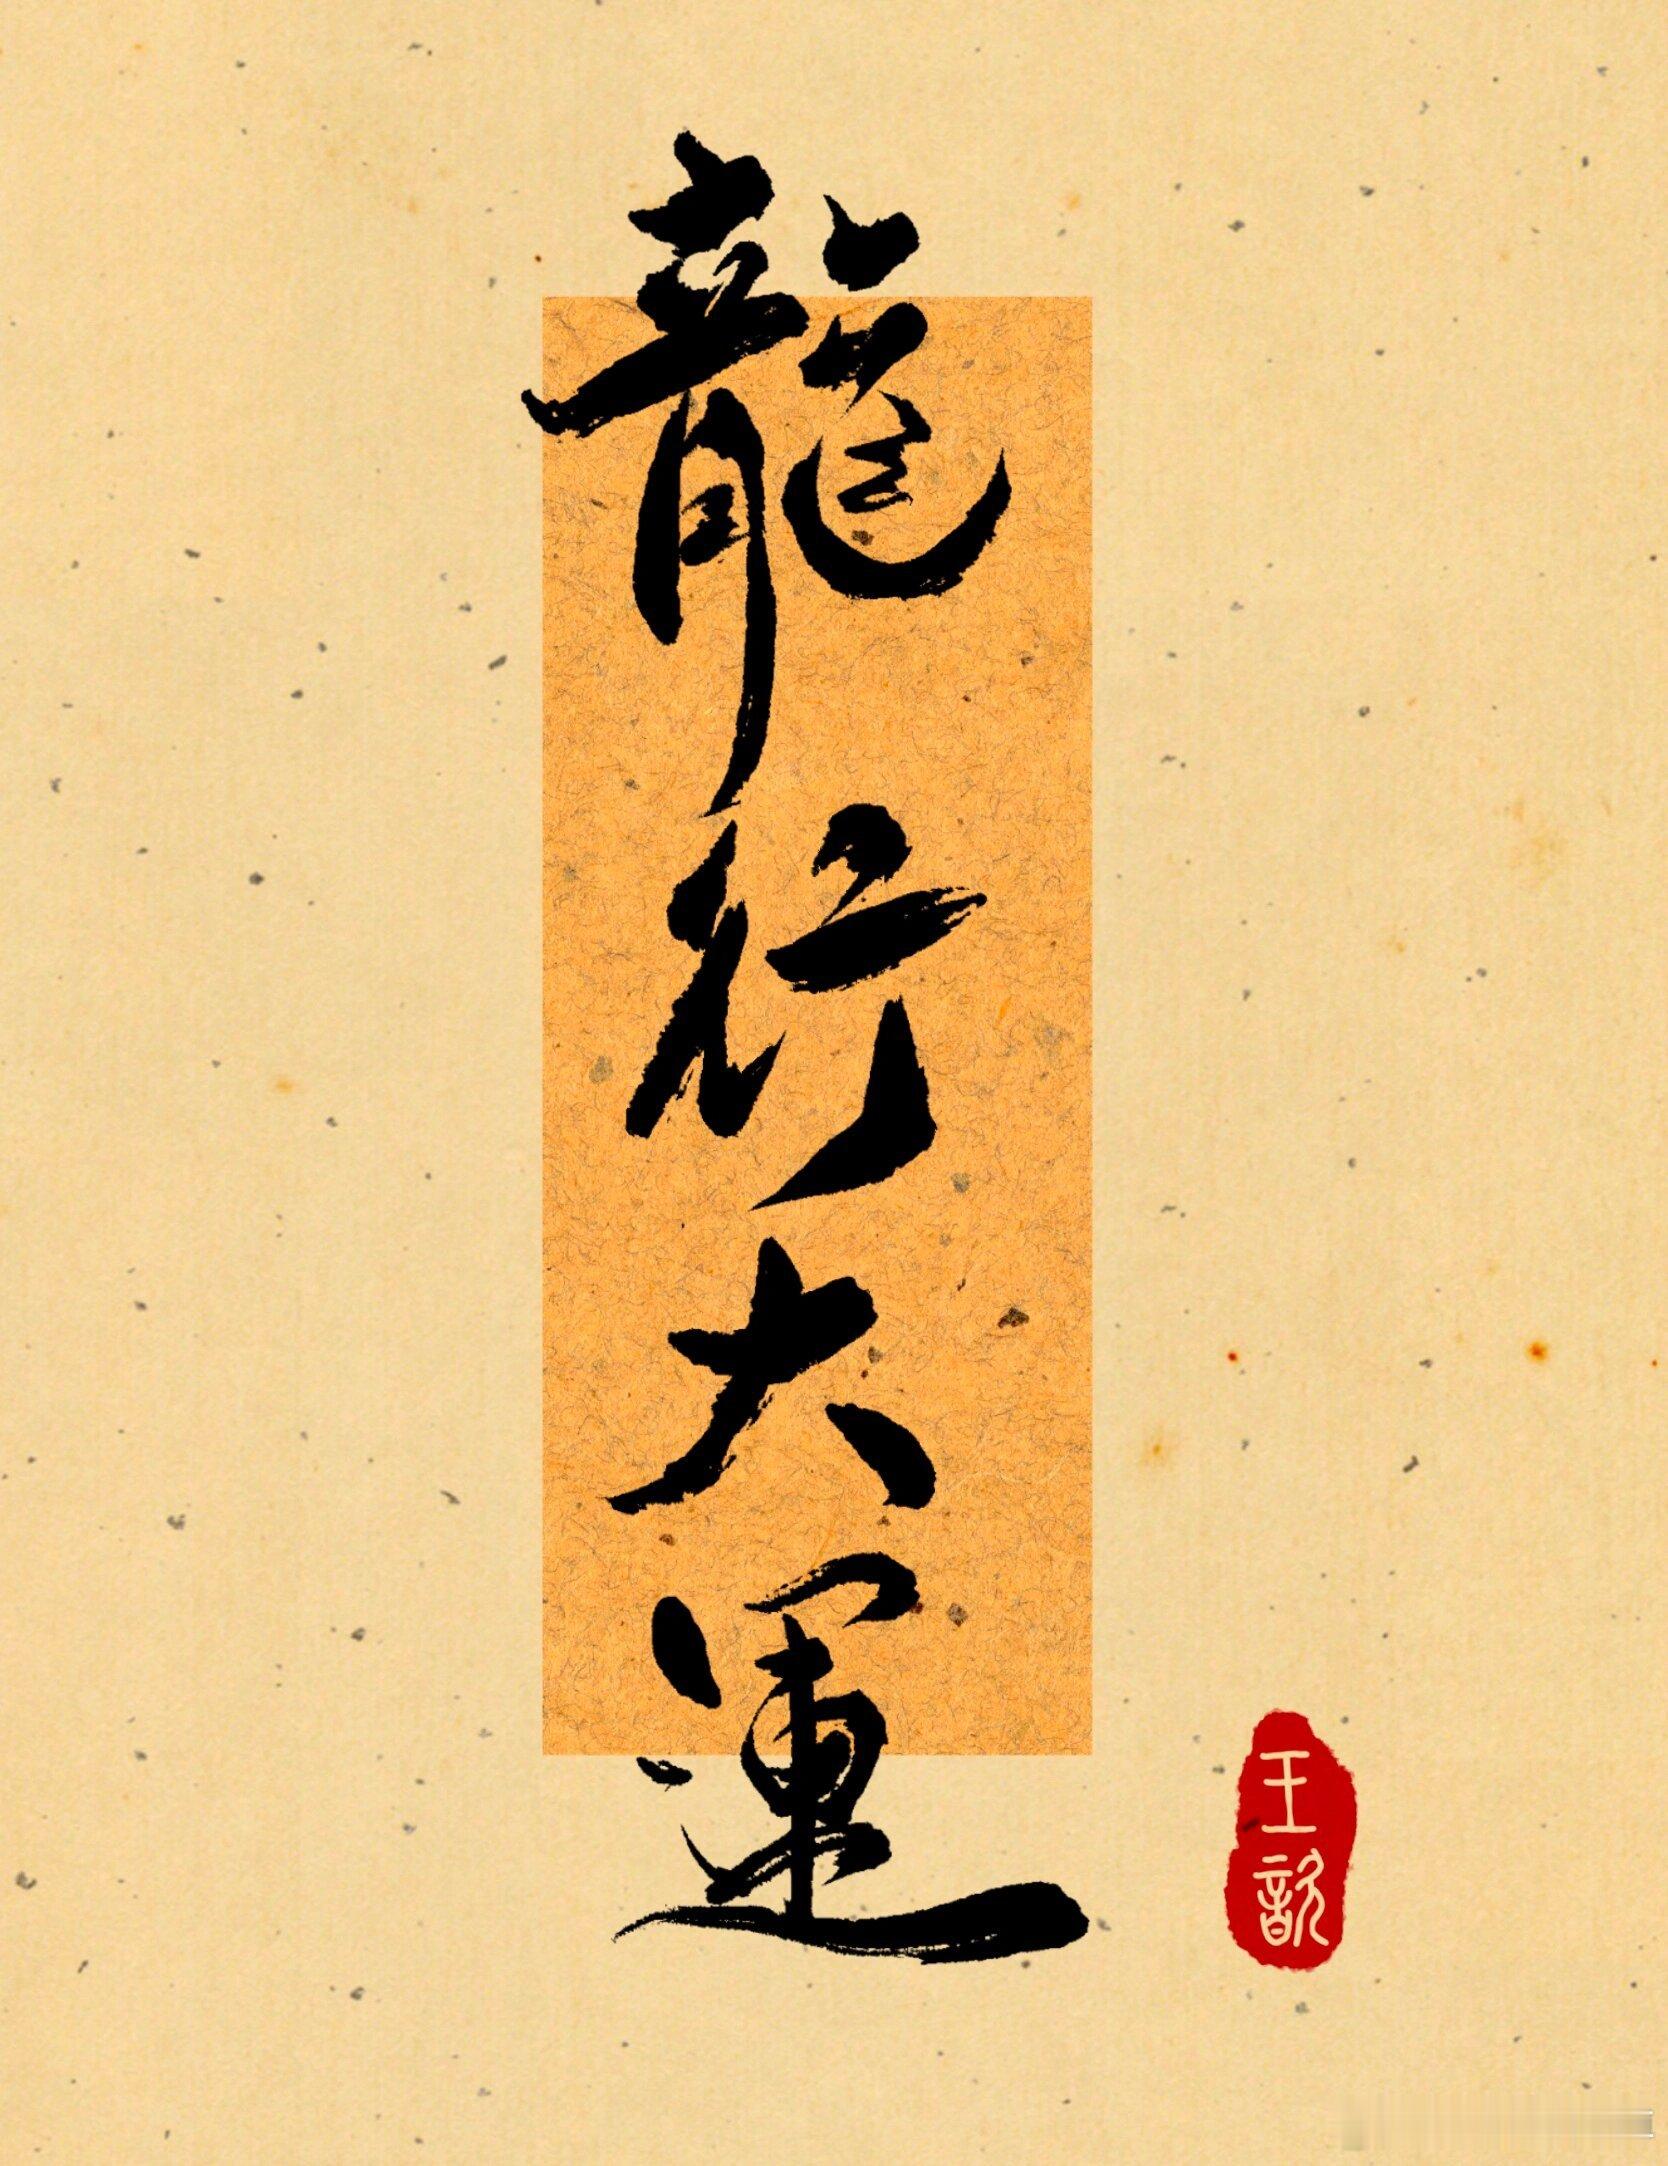 龍行大運
王韵